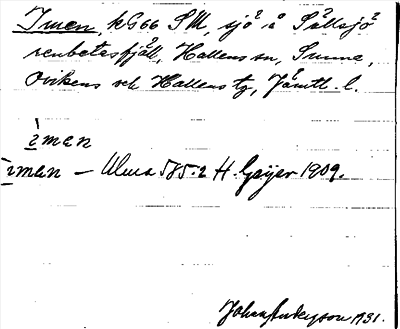 Imen, kG66 SM, sjö å Sällsjö
renbetesfjäll, Hallens sn, Sunne,
Ovikens och Hallens tg, Jämtl. l.
ìmen
ìmen — Ulma 585:2 H. Geijer 1909.
Johan Anderson 1931.